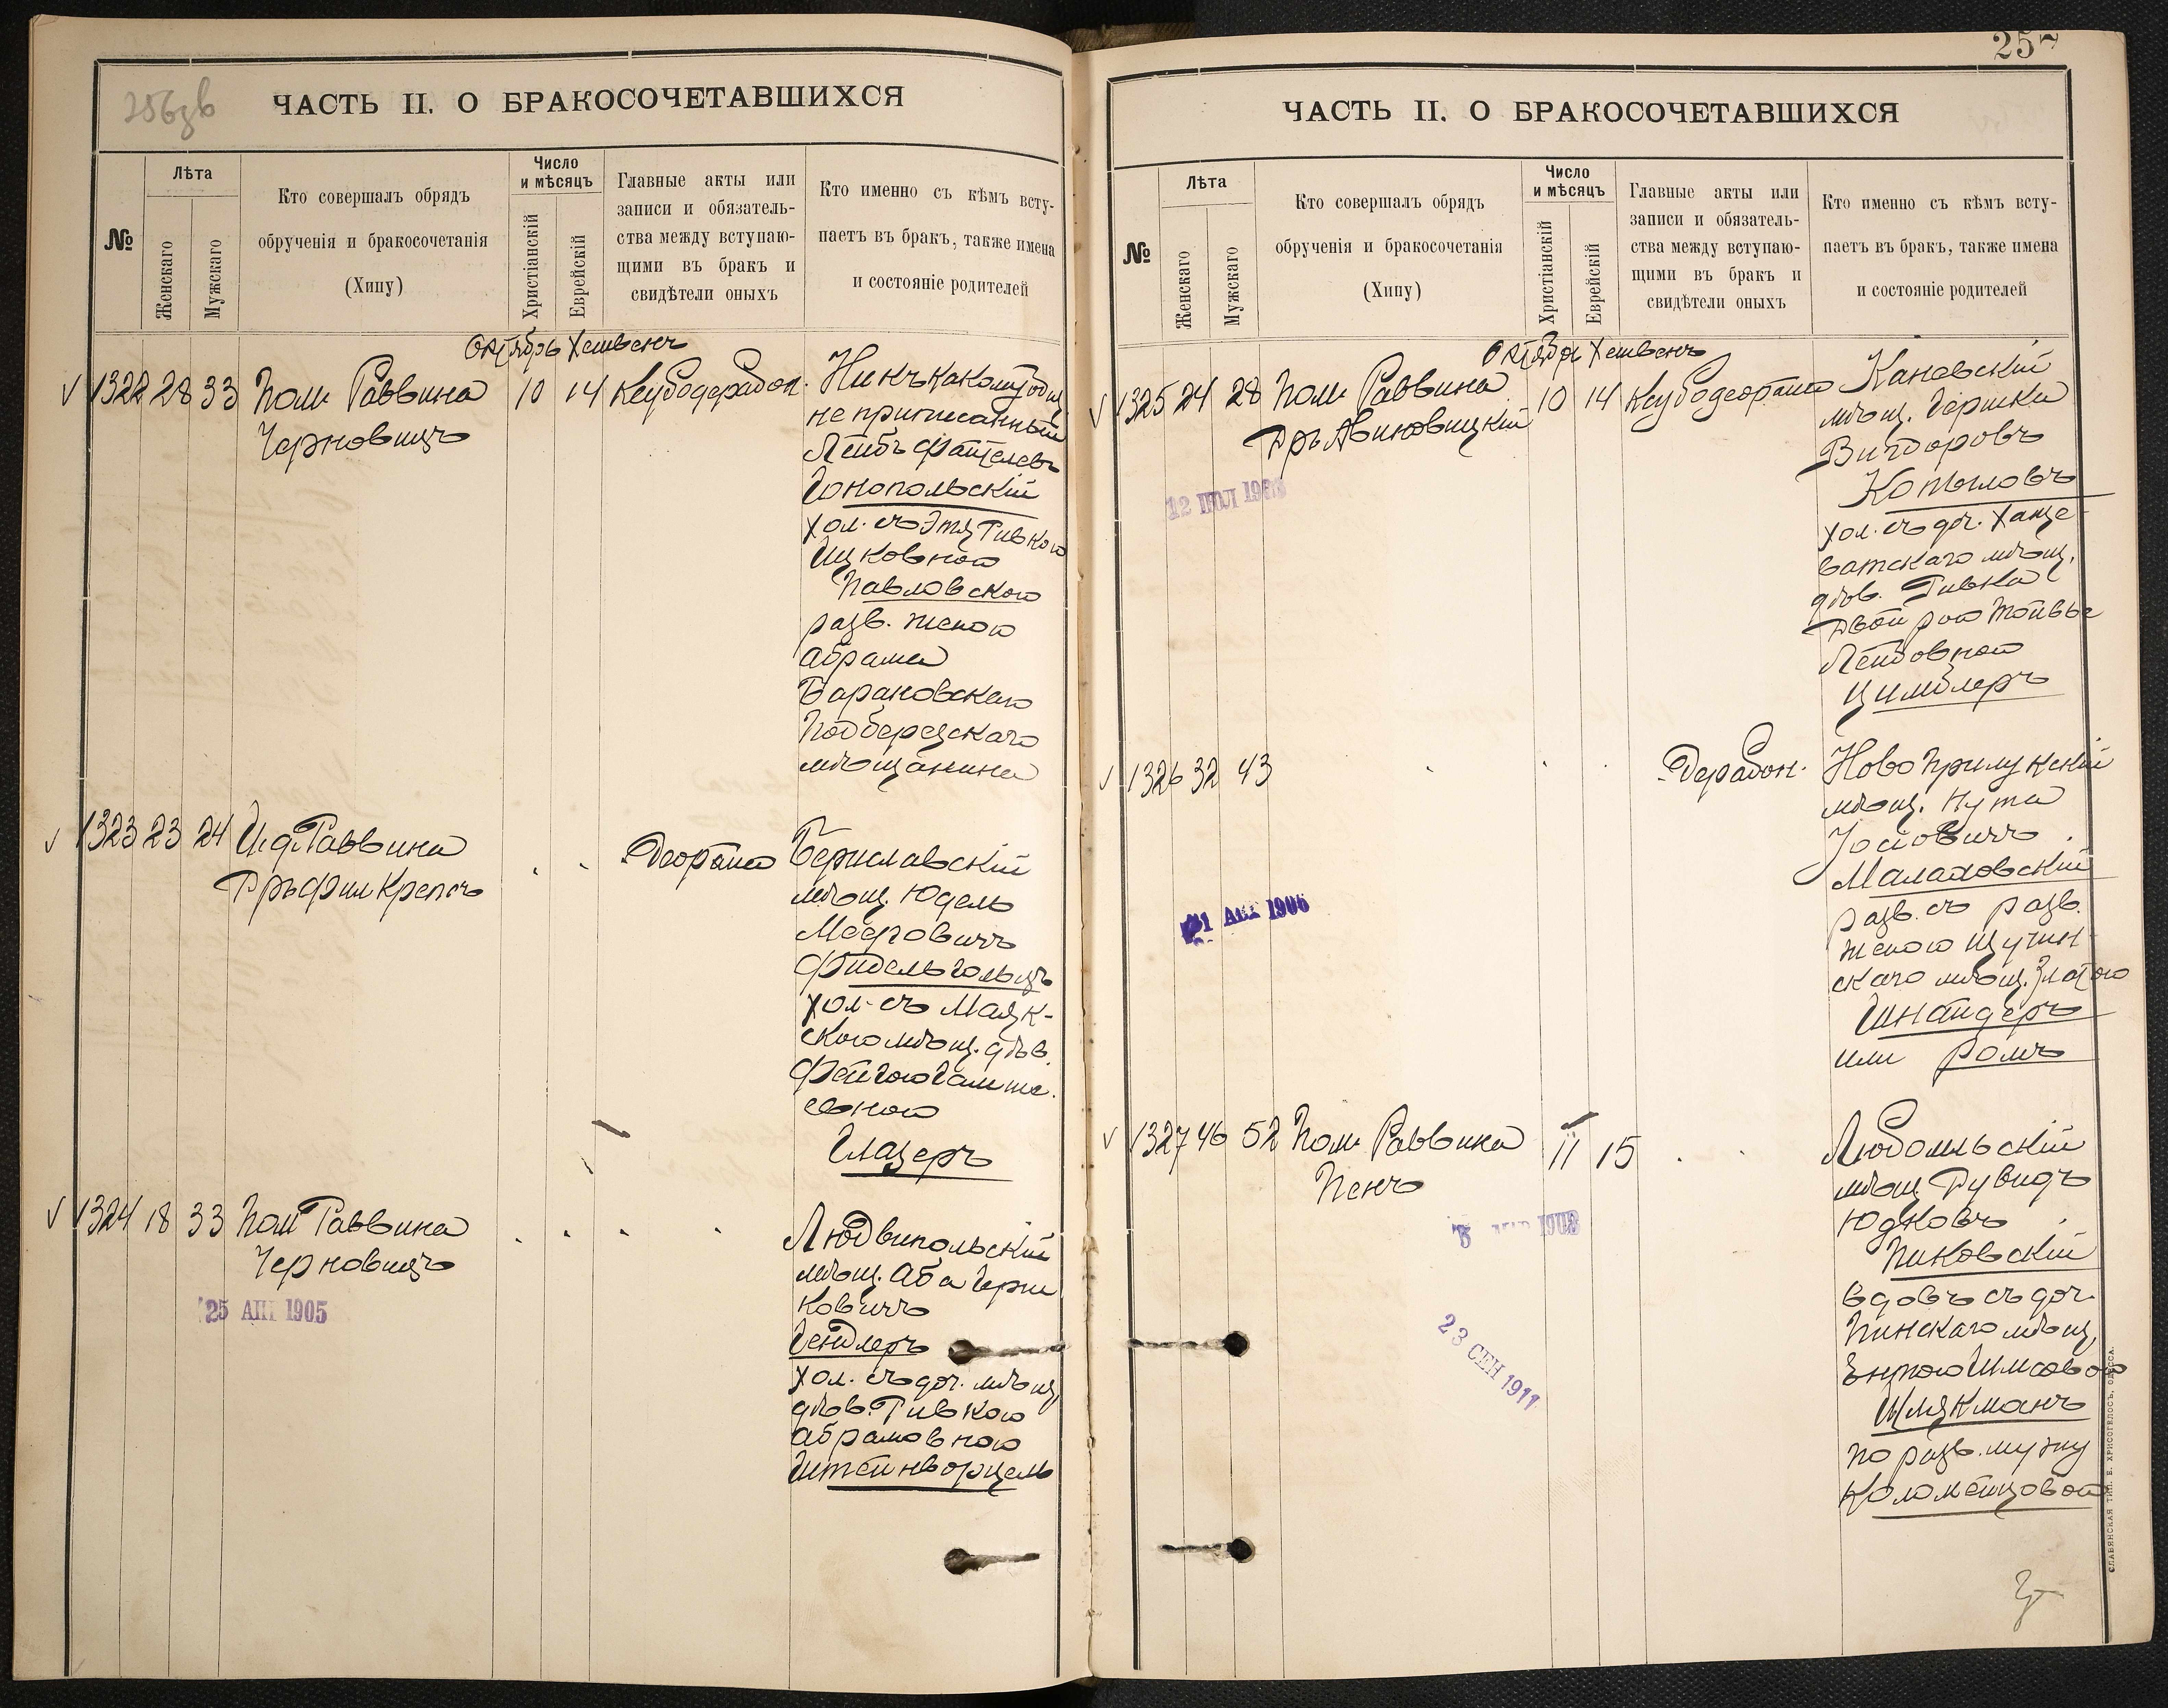 256зв
ЧАСТЬ II. О БРАКОСОЧЕТАВШИХСЯ
№
Лѣта
Женскаго
Мужскаго
Кто совершалъ обрядъ
обрученія и бракосочетанія
(Хипу)
Число
и мѣсяцъ
Христіанскій
Еврейскій
Главные акты или
записи и обязатель-
ства между вступаю-
щими въ бракъ и
свидѣтели оныхъ
Кто именно съ кѣмъ всту-
паетъ въ бракъ, также имена
и состояніе родителей
Октябрь Хешвенъ
1322 28 33 Пом. Раввина 10 14
Черновицъ
не приписанный
Лейбъ
Гонопольскій
хол. съ Этя Ривкою
Ицковною
Павловскою
разв. женою
Абрама
Барановскаго
Подберезскаго
мѣщанина
1323 23 24 И. д. Раввина
Дръ Филь Крепсъ
Бериславскій
мѣщ. Юдель
Мееровичъ
Фидельгольцъ
хол. съ Маяк-
скою мѣщ. дѣв.
Фейгою
евною
Глазеръ
1324 18 33 Пом Раввина
Черновицъ
25 АПР 1905
Людвипольскій
мѣщ. Аба Герш
ковичъ
Гендлеръ
хол. съ доч. мѣщ,
дѣв. Ривкою
Абрамовною
Штейнворцель
25
ЧАСТЬ II. О БРАКОСОЧЕТАВШИХСЯ
№
Лѣта
Женскаго
Мужскаго
Кто совершалъ обрядъ
обрученія и бракосочетанія
(Хипу)
Число
и мѣсяцъ
Христіанскій
Еврейскій
Главные акты или
записи и обязатель-
ства между вступаю-
щими въ бракъ и
свидѣтели оныхъ
Кто именно съ кѣмъ всту-
паетъ въ бракъ, также имена
и состояніе родителей
Октябрь Хешвенъ
1325 24 28 Пом. Раввина 10 14
Дръ Авиновицкій
Каневскій
мѣщ. Гершка
Вигдоровъ
Копыловъ
хол. съ доч. Хаще-
ватскаго мѣщ.
дѣв. Ривка
Двойрою
Лейбовною
Цимблеръ
1326 32 43
Новоприлукскій
мѣщ. Нута
Іосіовичъ
Малаховскій
разв. съ разв.
женою Щучин-
скаго мѣщ. Златою
Шнайдеръ
или Ромъ
1327 46 52 Пом. Раввина 11 15
Пенъ
23 СЕН 1911
Любомльскій
мѣщ. Рувидъ
Юдковъ
Пиковскій
вдовъ съ доч.
Пинскаго мѣщ,
Шлякманъ
по разв. мужу
Коломейцовой
СЛАВЯНСКАЯ ТИП. Е. ХРИСОГЕЛОСЪ, ОДЕССА.